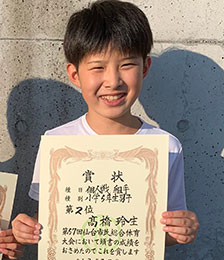 賞状
種目 個人戦 組手
種別 小学5年生男子
第2位
高橋 玲生
第57回仙台市民総合体育
大会において頭書の成績を
おさめたのでこれを賞します